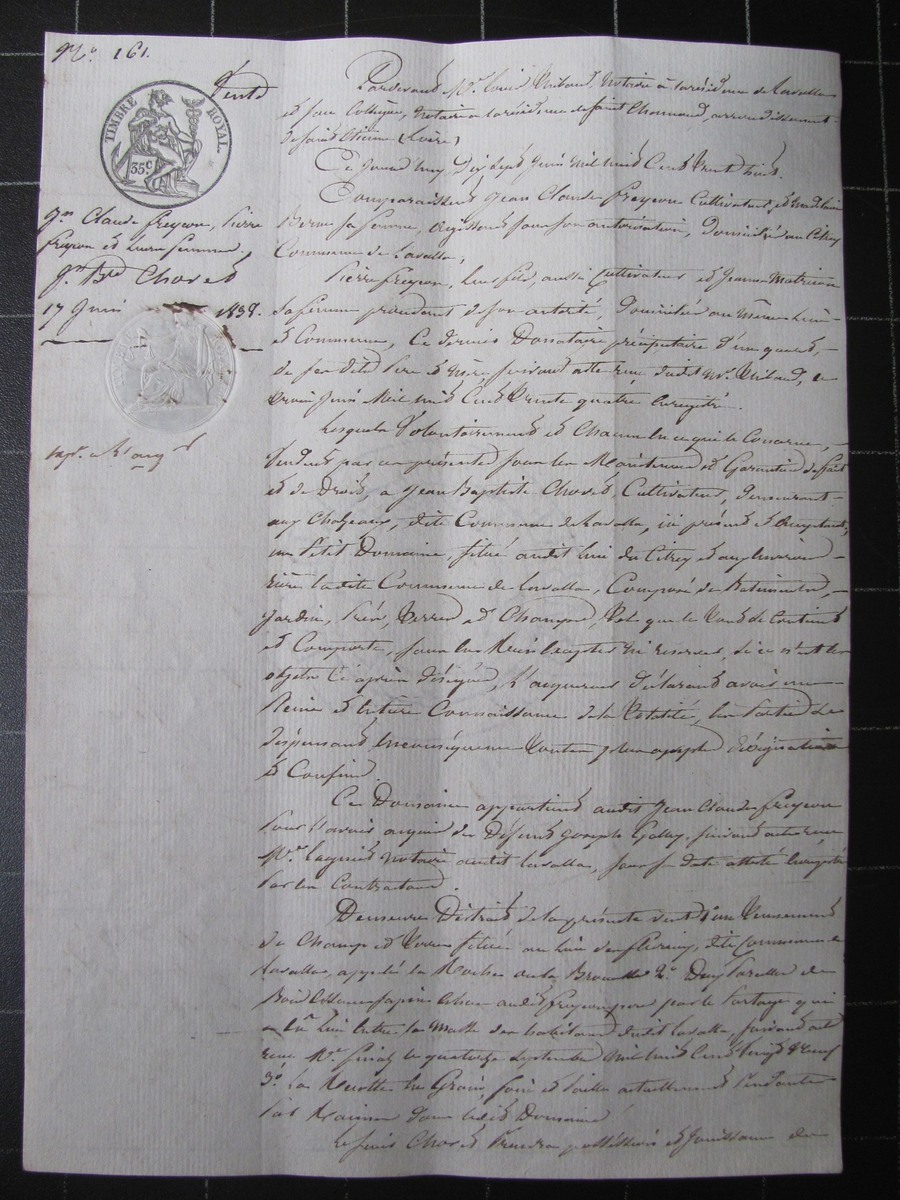 N.o 161.
Vente
TIMBRE ROYAL
35c
Jn Claude Freycon, Pierre
Freycon et leurs femmes,
Jn Bte Chorel
17 Juin 1838.
Pardevant Me Louis notaire à la résidence de Lavalla
et son collègue, notaire à la résidence de Saint Chamond, arrondissement
de Saint Etienne (Loire)
Ce jourd'huy Dix sept Juin mil huit Cent trente huit.
Comparaissent Jean Claude Freycon Cultivateur, et
sa femme, agissant sous son autorisation, Domiciliés au Citrey
Commune de Lavalla,
Pierre Freycon, leur fils, aussi Cultivateur et Jeanne Matricon
sa femme procédant de son autorité, Domiciliés au même lieu
et Commune, Ce dernier Donataire préciputaire d'un quart,
de ses dits Père et mère suivant acte reçu dudit Me le
trois Juin Mil huit Cent trente quatre enregistré.
Lesquels Volontairement et Chacun en ce qui le Concerne,
Vendent par ces présentes sous les Maintenue et Garantie de fait
et de Droit, a Jean Baptiste Chorel, Cultivateur, demeurant
aux Chazeaux, dite Commune de Lavalla, ici présent et acceptant,
un Petit Domaine, situé audit lieu du Citrey et aux
rière ladite Commune de Lavalla, Composé de Batiments,
Jardin, Prés, Terres et Champs, tel que le tout se Contient
et Comporte, sans en Rien excepter ni réserver, si ce n'est les
objets Ci après désignés, L'acquéreur déclarant avoir une
Pleine et Entière Connaissance de la Totalité, les Parties se
dispensant en conséquence toutes plus ample désignation
et Confins.
Ce Domaine appartient audit Jean Claude Freycon
Pour l'avoir acquis de Défunt Joseph Galley, suivant acte reçu
Me notaire audit Lavalla, sous sa date attesté enregistré
Par les Contractans.
Demeure Distrait de la présente vente 1o un tènement
de Champ et Terre situé au lieu de dite Commune de
Lavalla, appelé la Roche de la 2o Deux Parcelles de
Bois Essence Sapin échue audit Freycon père par le Partage qui
a eu lieu entre la Masse des habitans dudit Lavalla, suivant acte
reçu Me le quatorze Septembre Mil huit Cent vingt neuf
3o La Récolte en Grains, foin et Paille actuellement Pendante
Par Racines dans ledit Domaine.
Ledit Chorel Prendra possession et Jouissance du